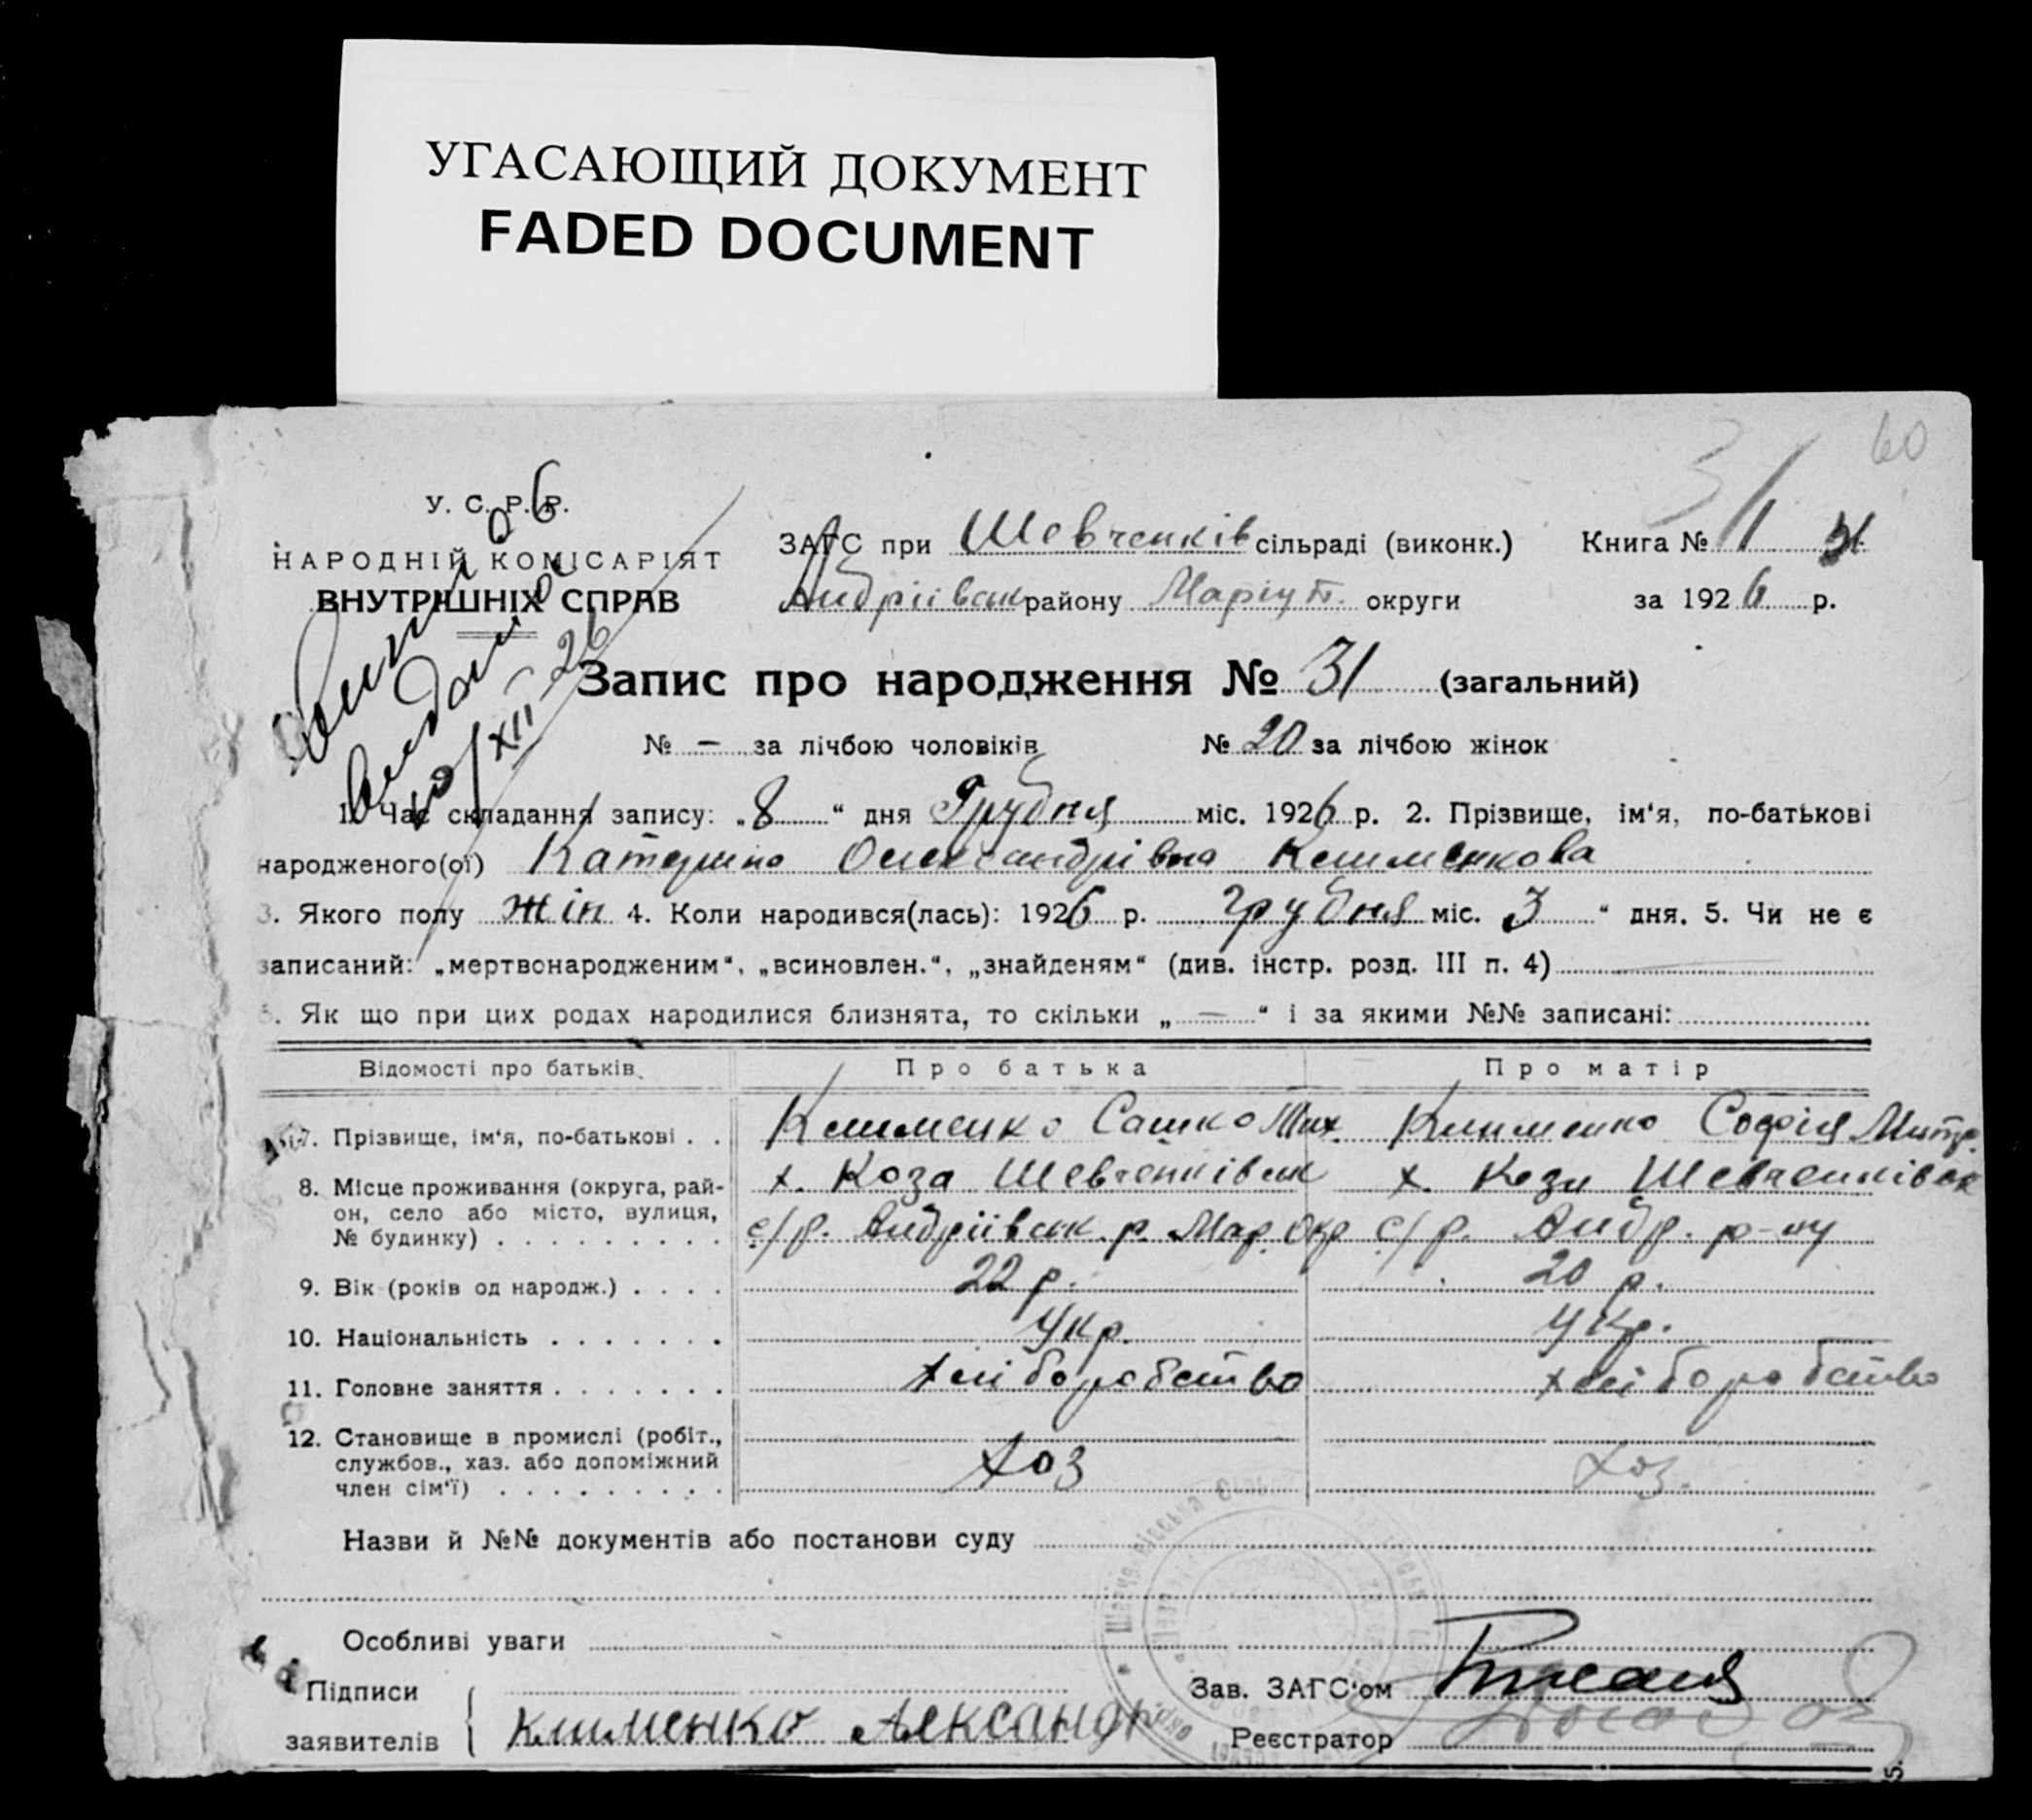 УГАСАЮЩИЙ ДОКУМЕНТ
FADED DOCUMENT
60
31
У. С. Р. Р.
НАРОДНІЙ КОМІСАРІЯТ
ВНУТРІШНІХ СПРАВ
ЗАГС при Шевченків сільраді (виконк.) Книга № 1 31
Андріївськ району Маріуп. округи за 1926 р.
XII-26
Запис про народження № 31 (загальний)
№ — за лічбою чоловіків № 20 за лічбою жінок
1. Час складання запису: „8“ дня Грудня міс. 1926 р. 2. Прізвище, ім‘я, по-батькові
народженого(ої) Катерина Олександрівна Клименкова
3. Якого полу жін 4. Коли народився(лась): 1926 р. грудня міс. 3“ дня. 5. Чи не є
записаний: „мертвонародженим“, „всиновлен.“, „знайденям“ (див. інстр. розд. III п. 4)
6. Як що при цих родах народилися близнята, то скільки „—“ і за якими №№ записані:
Відомості про батьків. Про батька Про матір
7. Прізвище, ім‘я, по-батькові . . Клименко Сашко Мих. Клименко Софія Митр.
8. Місце проживання (округа, рай- х. Коза Шевченківськ х. Кози Шевченківськ
он, село або місто, вулиця,
№ будинку) . . . . . . . . . с/р. Андріївськ. р. Мар. Окр с/р. Андр. р-ну
9. Вік (років од народж.) . . . . 22 р. 20 р.
10. Національність . . . . . . . Укр. Укр.
11. Головне заняття . . . . . . . хліборобство хліборобство
12. Становище в промислі (робіт.,
службов., хаз. або допоміжний Хоз Хоз.
член сім‘ї) . . . . . . . . .
Назви й №№ документів або постанови суду
Особливі уваги
Підписи Зав. ЗАГС‘ом
заявителів Клименко Александр Реєстратор